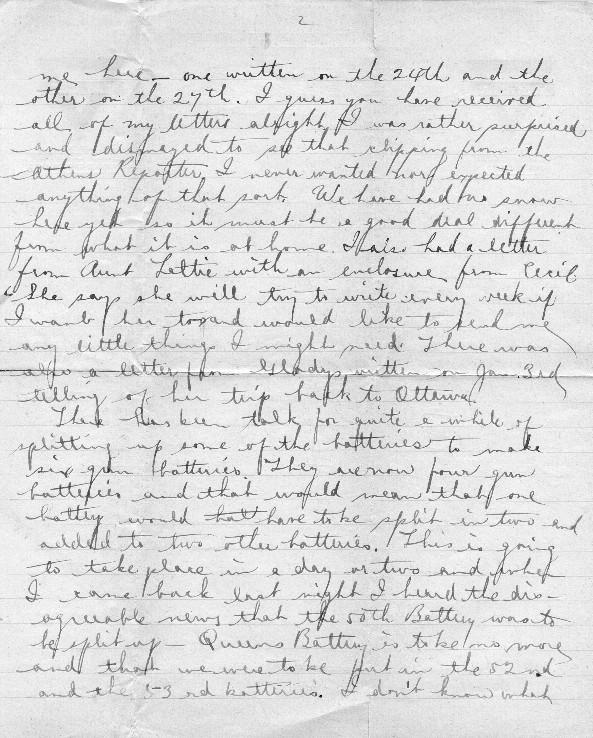 2
me here - one written on the 24th and the
other on the 27th. I guess you have received
all of my letters alright. I was rather surprised
and dismayed to see that clipping from the
Athens Reporter, I never wanted nor expected
anything of that sort. We have had no snow
here yet so it must be a good deal different
from what it is at home. I also had a letter
from Aunt Lettie with an enclosure from Cecil
She says she will try to write every week if
I want her to and would like to send me
any little things I might need. There was
also a letter from Gladys written on Jan. 3rd
telling of her trip back to Ottawa.
There has been talk for quite a while of
splitting up some of the batteries to make
six gun batteries. They are now four gun
batteries and that would mean that one
battery would have to be split in two and
added to two other batteries. This is going
to take place in a day or two and when
I came back last night I heard the dis-
agreeable news that the 50th Battery was to
be split up - Queens Battery is to be no more
and that we were to be put in the 52nd
and the 53rd batteries. I don't know what